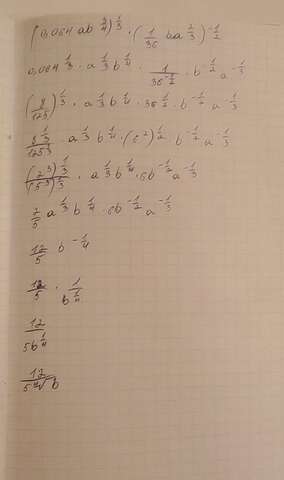 (0,064 ab^{3/4})^{1/3} · (1/36 ba^{2/3})^{-1/2}
0,064^{1/3} · a^{1/3} b^{1/4} · 1/36^{-1/2} · b^{-1/2} a^{-1/3}
(8/125)^{1/3} · a^{1/3} b^{1/4} · 36^{1/2} · b^{-1/2} a^{-1/3}
8^{1/3}/125^{1/3} · a^{1/3} b^{1/4} · (6^2)^{1/2} · b^{-1/2} a^{-1/3}
(2^3)^{1/3}/(5^3)^{1/3} · a^{1/3} b^{1/4} · 6b^{-1/2} a^{-1/3}
2/5 a^{1/3} b^{1/4} · 6b^{-1/2} a^{-1/3}
12/5 b^{-1/4}
12/5 · 1/b^{1/4}
12/5b^{1/4}
12/5∜b